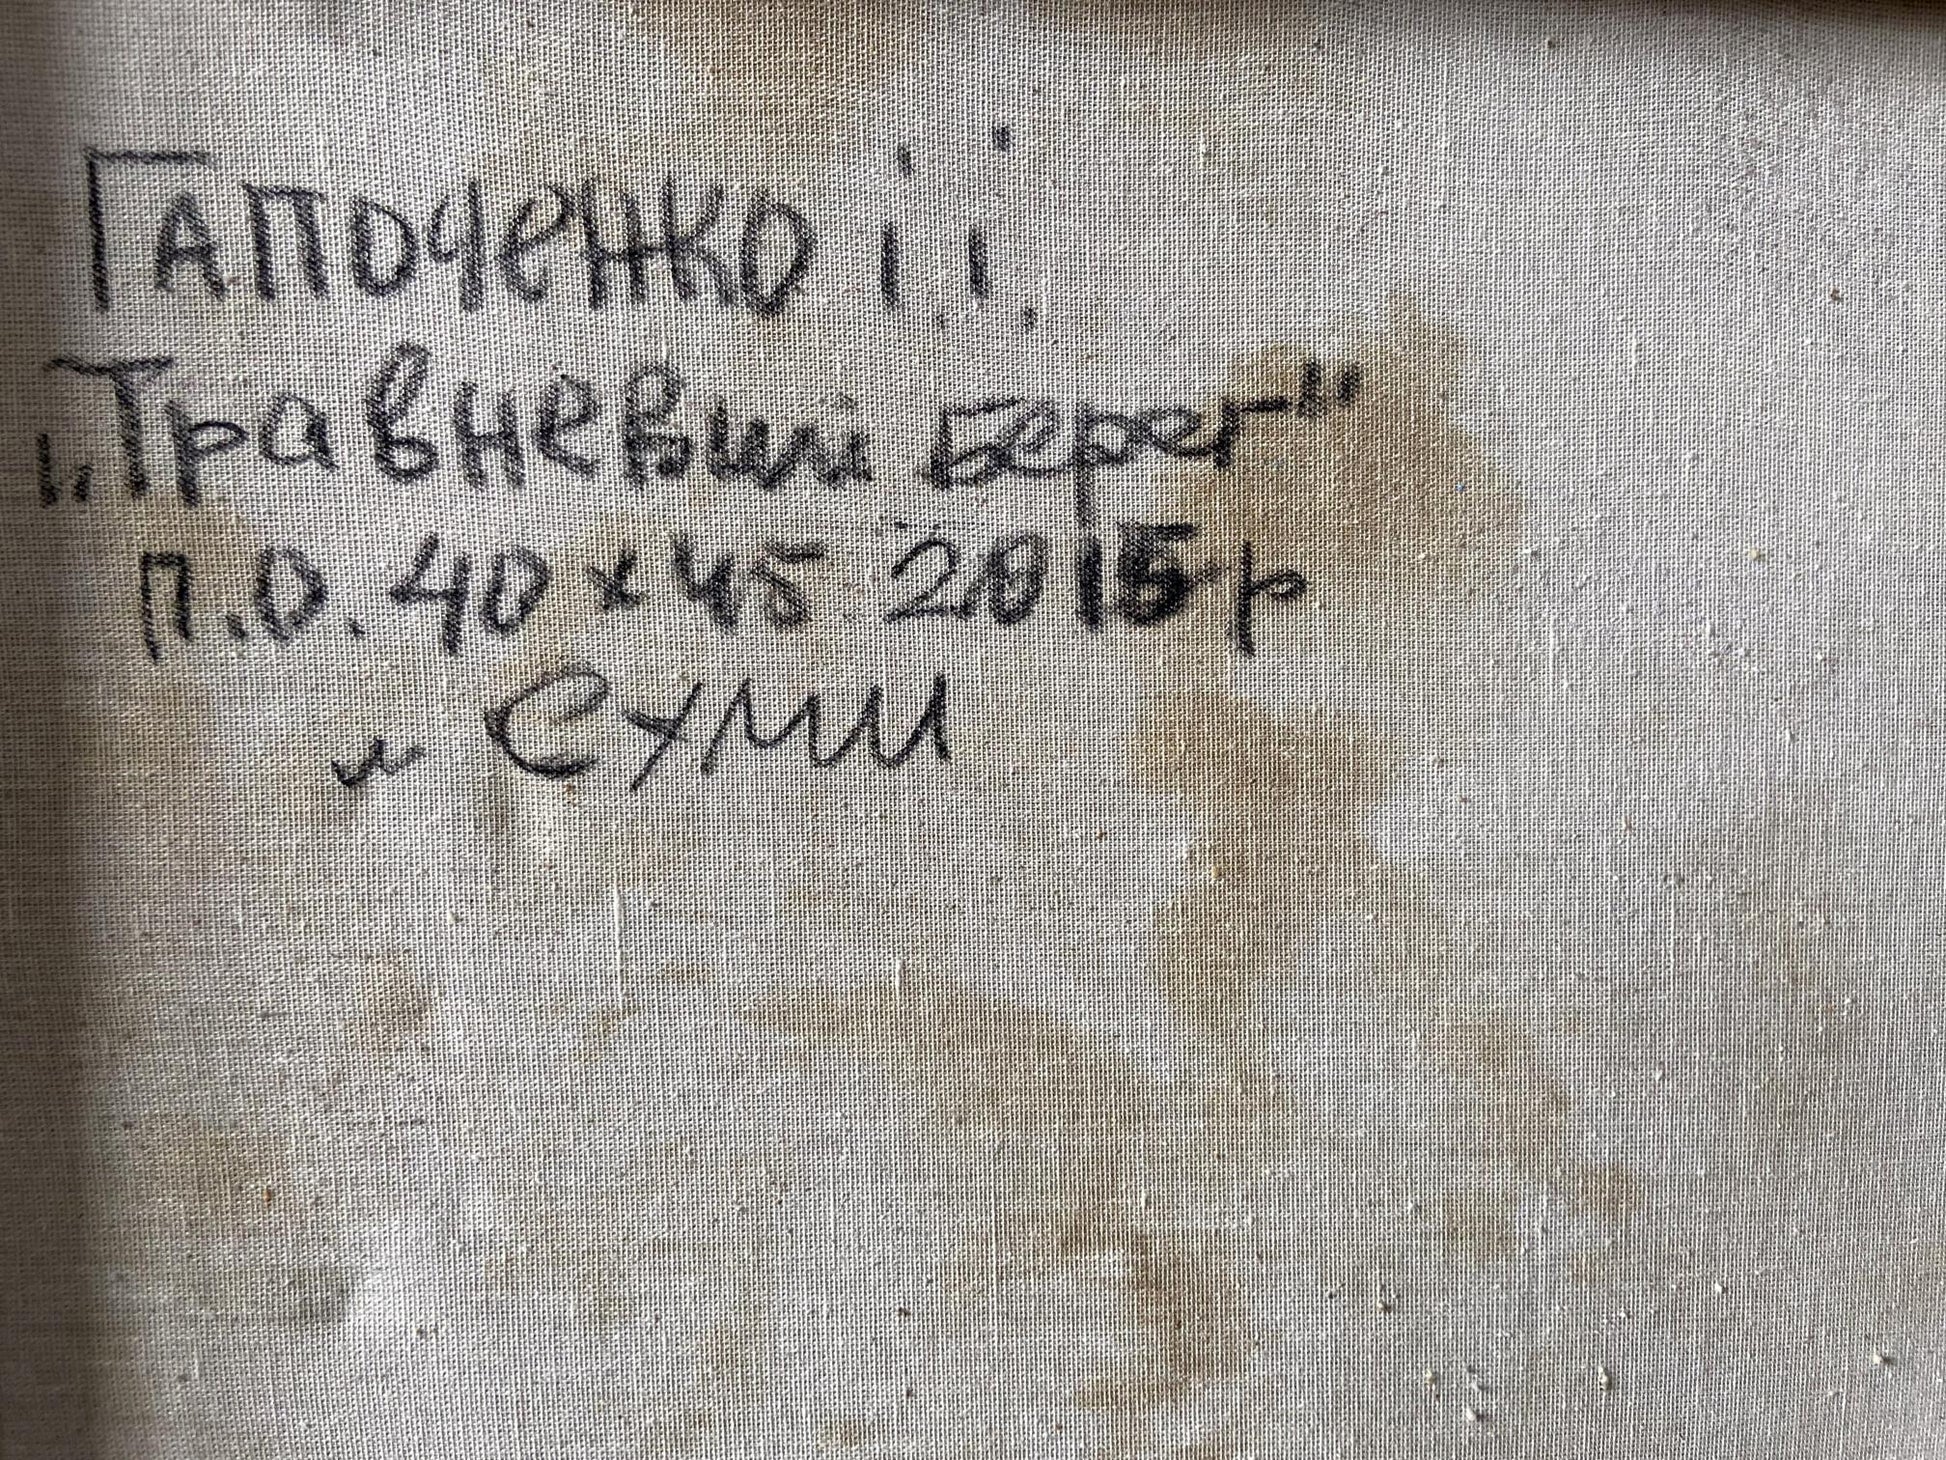 Гапоченко і.і.
„Травневий берег"
п.о. 40х45 2015р
м Суми